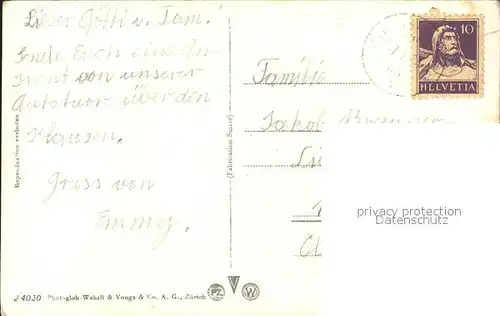 Lieber Götti u. Fam.!
Sende Euch eine An-
sicht von unserer
Autotour über den
Klausen.
Gruss von
Emmy.
Familie
Jakob
10
HELVETIA
Reproduction verboten
(Fabrication Suisse)
privacy protection
Datenschutz
J 4030 Photoglob-Wehrli & Vouga & Co. A. G., Zürich
PZ
W